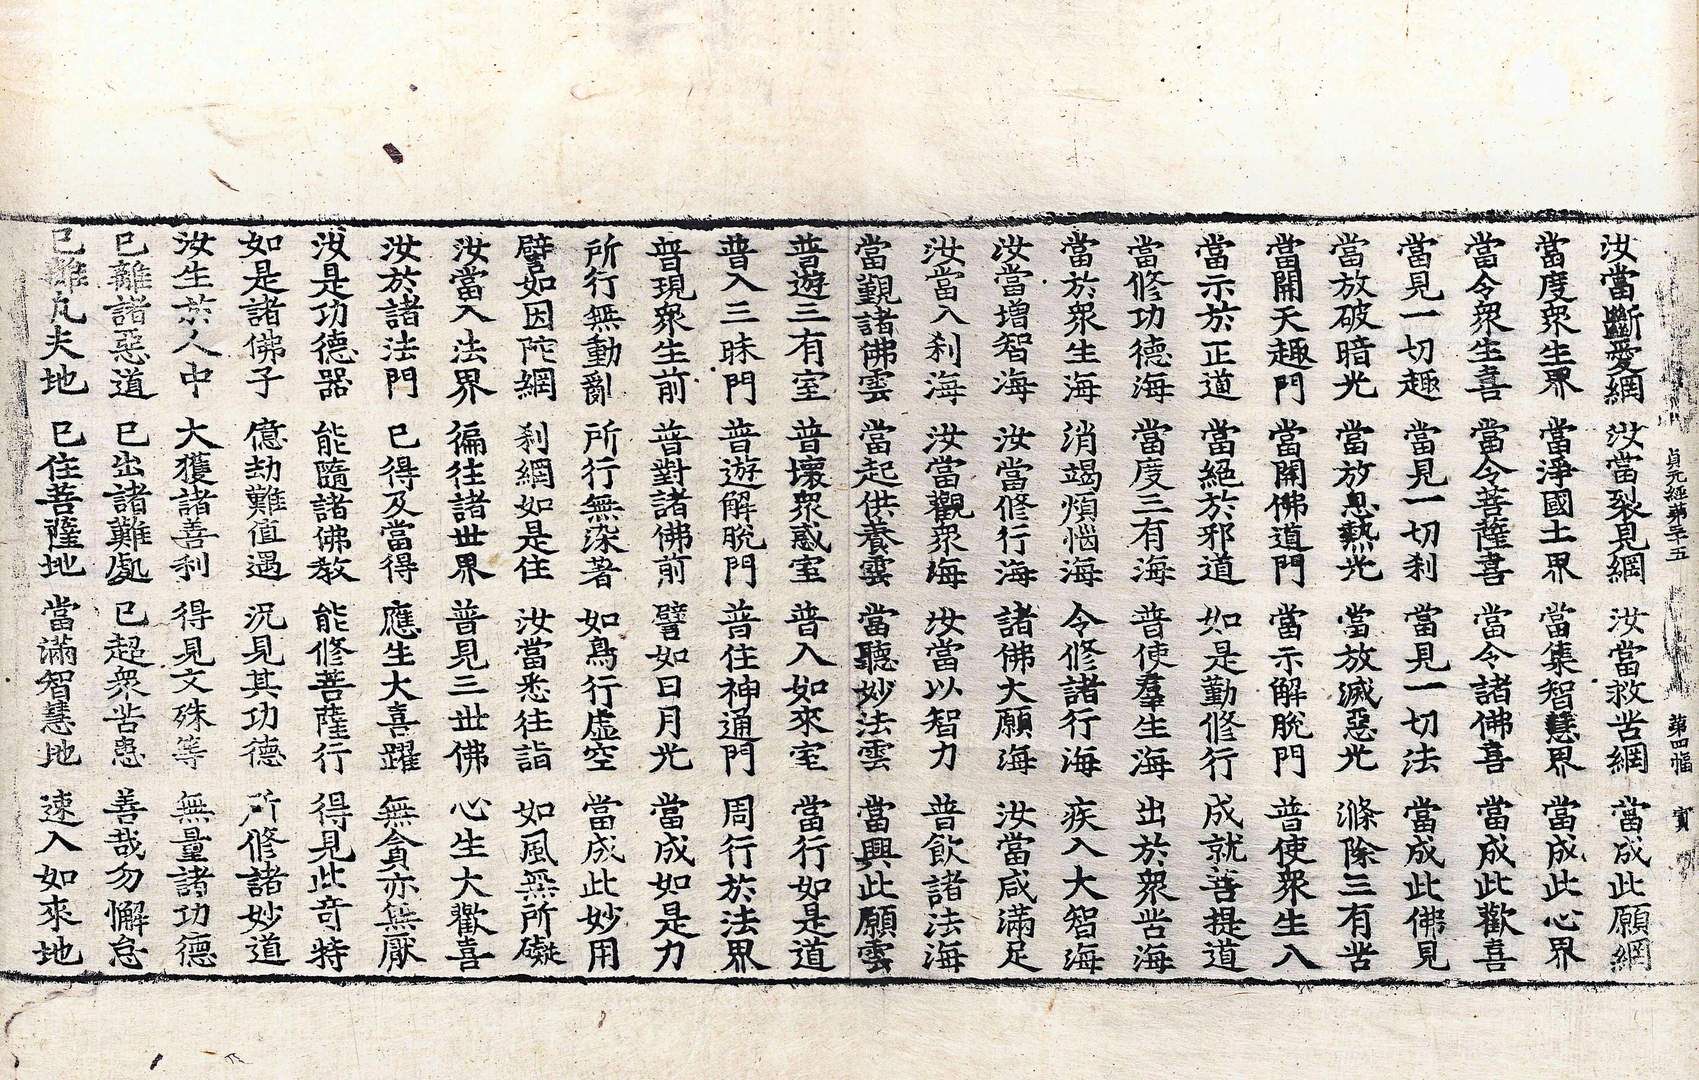 貞元經第三十五 第四幅 賓
汝當斷愛網 汝當裂見網 汝當救苦網 當成此願網
當度衆生界 當淨國土界 當集智慧界 當成此心界
當令衆生喜 當令菩薩喜 當令諸佛喜 當成此歡喜
當見一切趣 當見一切刹 當見一切法 當成此佛見
當放破暗光 當放息熱光 當放滅惡光 滌除三有苦
當開天趣門 當開佛道門 當示解脫門 普使衆生入
當示於正道 當絕於邪道 如是勤修行 成就菩提道
當修功德海 當度三有海 普使羣生海 出於衆苦海
當於衆生海 消竭煩惱海 令修諸行海 疾入大智海
汝當增智海 汝當修行海 諸佛大願海 汝當咸滿足
汝當入刹海 汝當觀衆海 汝當以智力 普飲諸法海
當覲諸佛雲 當起供養雲 當聽妙法雲 當興此願雲
普遊三有室 普壞衆惑室 普入如來室 當行如是道
普入三昧門 普遊解脫門 普住神通門 周行於法界
普現衆生前 普對諸佛前 譬如日月光 當成如是力
所行無動亂 所行無染著 如鳥行虛空 當成此妙用
譬如因陀網 刹網如是住 汝當悉往詣 如風無所礙
汝當入法界 徧往諸世界 普見三世佛 心生大歡喜
汝於諸法門 已得及當得 應生大喜躍 無貪亦無厭
汝是功德器 能隨諸佛教 能修菩薩行 得見此奇特
如是諸佛子 億劫難值遇 況見其功德 所修諸妙道
汝生於人中 大獲諸善利 得見文殊等 無量諸功德
已離諸惡道 已出諸難處 已超衆苦患 善哉勿懈怠
已離凡夫地 已住菩薩地 當滿智慧地 速入如來地